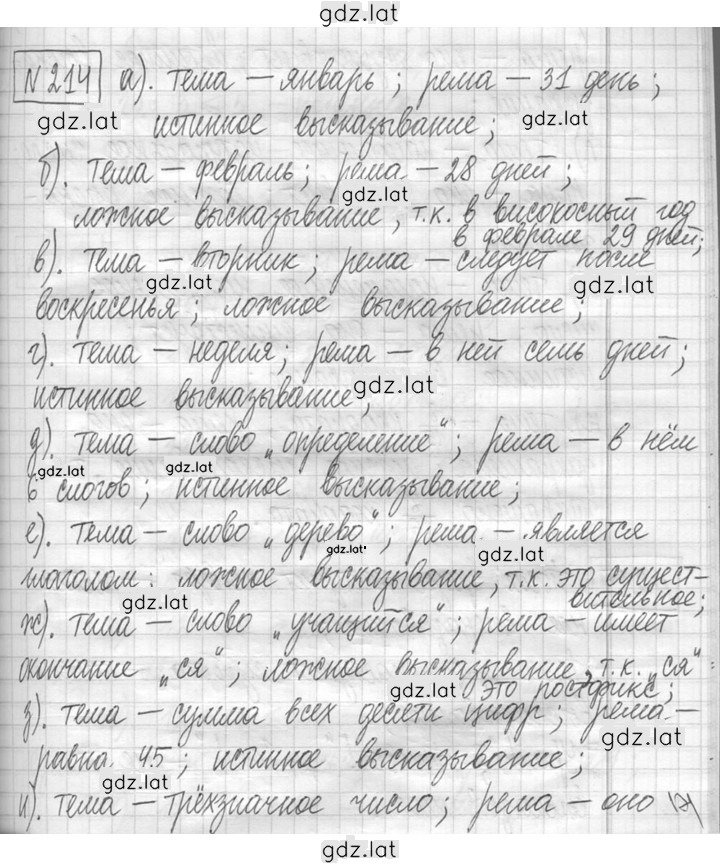 gdz.lat
N 214 а). тема — январь; рема — 31 день;
gdz.lat истинное высказывание; gdz.lat
б). тема — февраль; рема — 28 дней;
gdz.lat
ложное высказывание, т.к. в високосный год
в феврале 29 дней;
в). тема — вторник; рема — следует после
gdz.lat gdz.lat
воскресенья; ложное высказывание;
г). тема — неделя; рема — в ней семь дней;
истинное высказывание; gdz.lat
д). тема — слово „определение“; рема — в нём
gdz.lat gdz.lat
6 слогов; истинное высказывание;
е). тема — слово „дерево“; рема — является
gdz.lat gdz.lat
глаголом: ложное высказывание, т.к. это сущест-
gdz.lat вительное;
ж). тема — слово „учащийся“; рема — имеет
окончание „ся“; ложное высказывание, т.к. „ся“
gdz.lat это постфикс;
з). тема — сумма всех десяти цифр; рема —
gdz.lat
равна 45; истинное высказывание;
gdz.lat
и). тема — трёхзначное число; рема — оно
gdz.lat